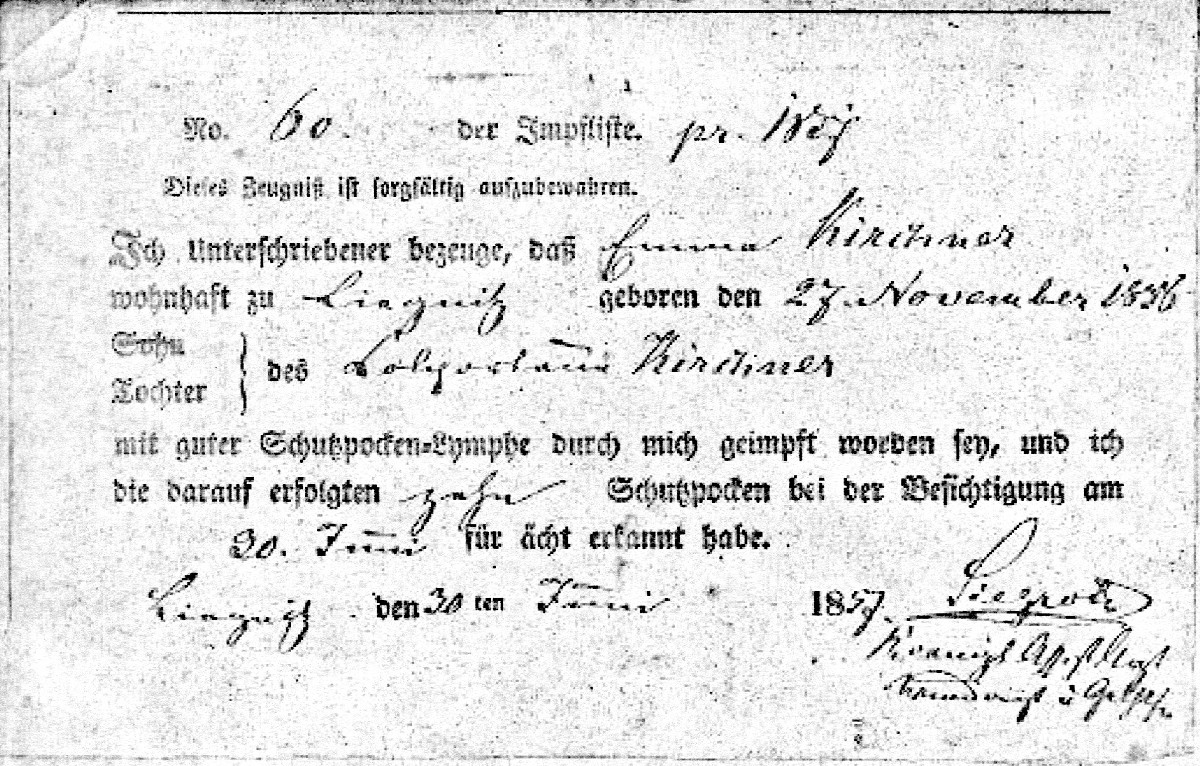 No. 60. der Impfliste. pr. 1857
Dieses Zeugniß ist sorgfältig aufzubewahren.
Ich Unterschriebener bezeuge, daß Emma Kirchner
wohnhaft zu Liegnitz geboren den 27. November 1856
Sohn
Tochter } des Kirchner
mit guter Schutzpocken-Lymphe durch mich geimpft worden sey, und ich
die darauf erfolgten zehn Schutzpocken bei der Besichtigung am
30. Juni für ächt erkannt habe.
Liegnitz den 30 ten Juni 1857.
Koenigl.